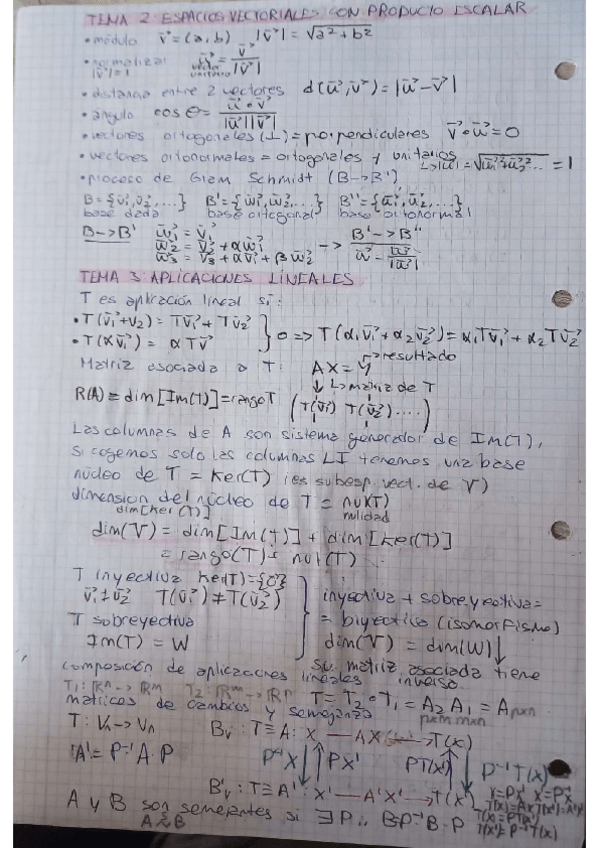 TEMA 2: ESPACIOS VECTORIALES CON PRODUCTO ESCALAR
• módulo v⃗=(a,b) |v⃗|=√a²+b²
• normalizar vector unitario = v⃗/|v⃗|
|v⃗|=1
• distancia entre 2 vectores d(u⃗,v⃗)=|u⃗-v⃗|
• ángulo cos θ = u⃗∘v⃗/|u⃗||v⃗|
• vectores ortogonales (⊥)=perpendiculares v⃗∘u⃗=0
• vectores ortonormales = ortogonales y unitarios
↳|u⃗|=√u₁²+u₂²... = 1
• proceso de Gram Schmidt (B->B')
B={v₁⃗,v₂⃗,...} B'={w₁⃗,w₂⃗,...} B''={u₁⃗,u₂⃗,...}
base dada base ortogonal base ortonormal
B->B' w₁⃗ = v₁⃗ -> B'->B''
w₂⃗ = v₂⃗ + αw₁⃗
w₃⃗ = v₃⃗ + αw₁⃗ + βw₂⃗
TEMA 3: APLICACIONES LINEALES
T es aplicación lineal si:
• T(v₁⃗+v₂)= Tv₁⃗+Tv₂⃗
• T(αv₁⃗) = αTv⃗ } o => T(α₁v₁⃗+α₂v₂⃗)=α₁Tv₁⃗+α₂Tv₂⃗
Matriz asociada a T: AX=Y ↱resultado
↓ ↳matriz de T
R(A) = dim[Im(T)]=rangoT (T(v₁⃗) T(v₂⃗)....)
Las columnas de A son sistema generador de Im(T),
si cogemos solo las columnas LI tenemos una base
núcleo de T = Ker(T) (es subesp. vect. de V)
dimension del núcleo de T = nul(T)
dim[Ker(T)] nulidad
dim(V) = dim[Im(T)] + dim[Ker(T)]
= rango(T) + nul(T)
T inyectiva Ker(T)={0⃗}
v₁⃗≠v₂⃗ T(v₁⃗)≠T(v₂⃗)
T sobreyectiva
Im(T) = W
inyectiva + sobreyectiva=
= biyectiva (isomorfismo)
dim(V) = dim(W)
su matriz asociada tiene
inversa
composición de aplicaciones lineales
T₁: ℝⁿ->ℝᵐ T₂: ℝᵐ->ℝᵖ T= T₂∘T₁ = A₂A₁ = Apxn
pxm mxn
matrices de cambios y semejanza
T: Vn->Vn Bv: T≡A: X — AX —> T(x)
A'= P⁻¹A·P P⁻¹X PX' PT(x') P⁻¹T(x)
B'v: T≡A': X' — A'X' —> T(x')
X=PX' X'=P⁻¹X
T(x)=AX T(x')=A'X'
T(x)=PT(x')
T(x')=P⁻¹T(x)
A y B son semejantes si ∃P
A≈B